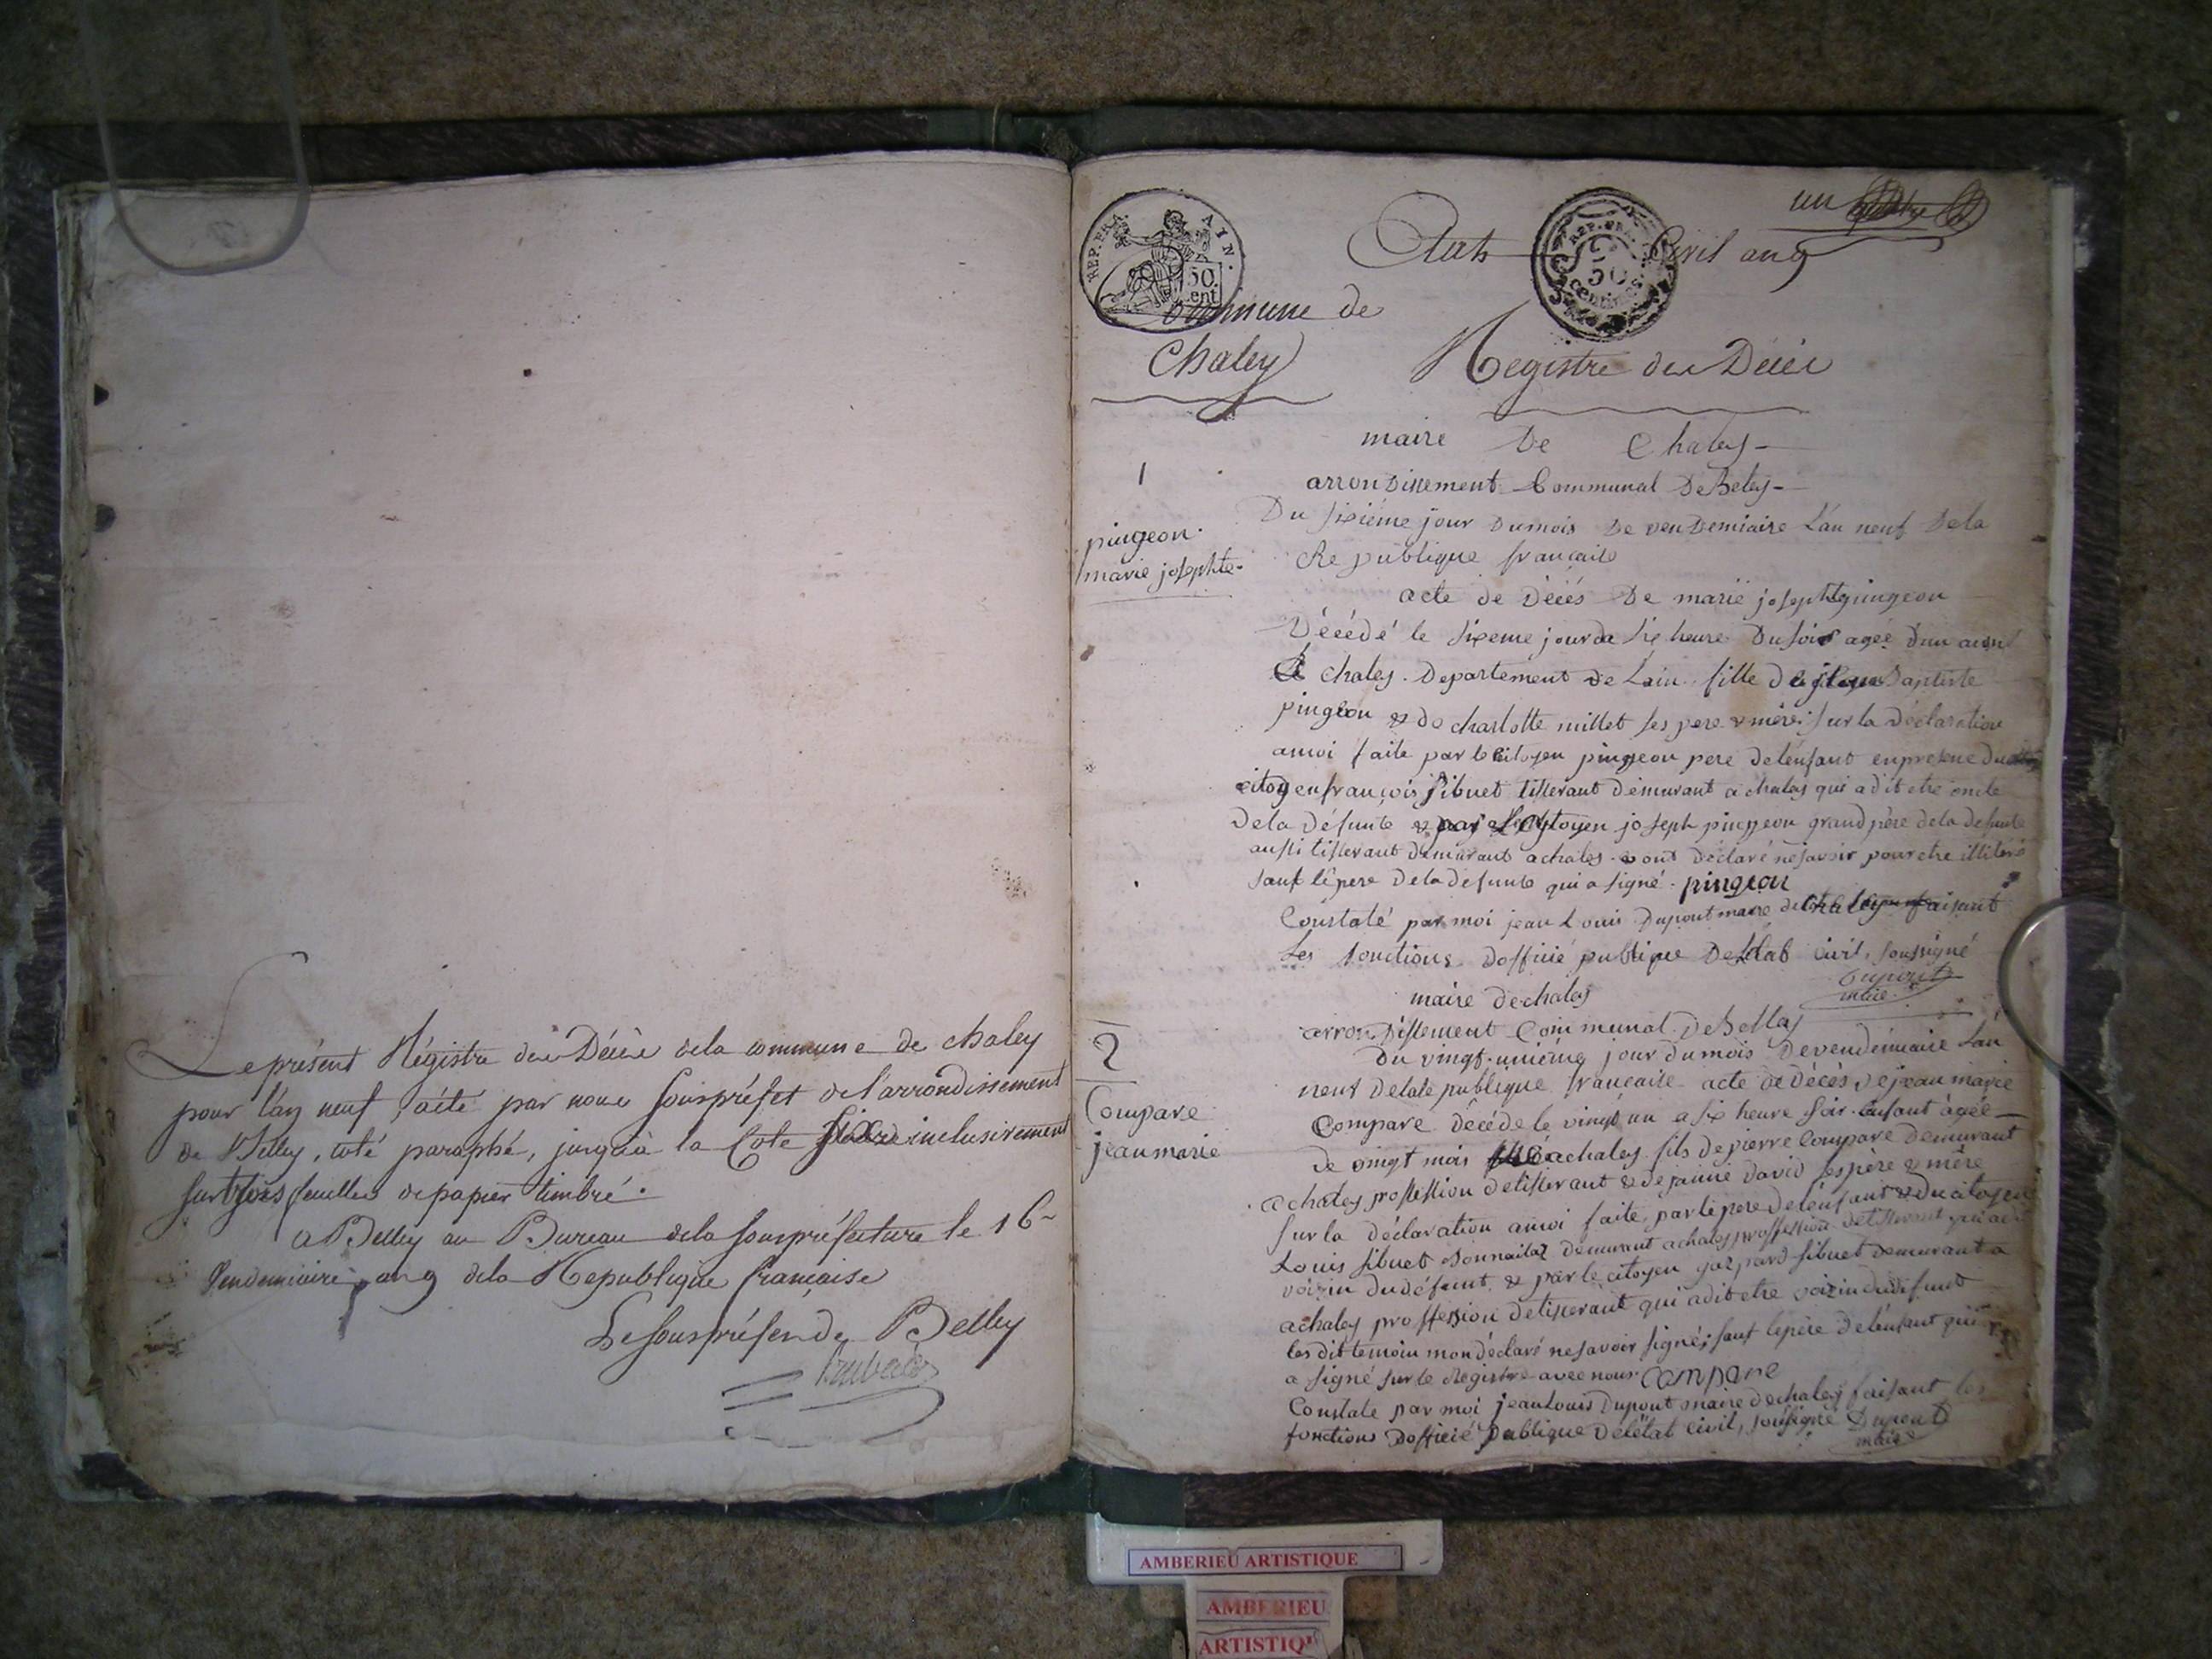 Le présent Régistre des Décès dela commune de chaley
pour l'an neuf, a été par nous souspréfet del'arrondissement
de Belley, coté paraphé, jusqu'à la Cote sixe inclusivement
sur trois feuilles depapier timbré.
A Belley au Bureau dela souspréfecture le 16
Vendemiaire an 9 dela Republique francaise
Le souspréfet de Belley
un
REP. FRA. AIN.
50 cent
REP. FRA.
50 centimes
Etat Civil an 9
Commune de
Chaley
Registre des Décès
maire De Chaley
1
arrondissement Communal De Beley
pingeon
marie josephte
Du sixiéme jour Dumois De vendemiaire L'an neuf Dela
Re publique francaise
acte de Décés De marie josephte pingeon
Décédé le sixeme jour a six heure Du soir agée d'un an
A chaley. Departement de Lain. fille De jean Baptiste
pingeon & de charlotte millet ses pere & mére sur la Déclaration
amoi faite par le citoyen pingeon pere delenfant enpresence du
citoyen françois sibuet tisserant demurant a chaley qui a dit etre oncle
Dela défunte & par le Cytoyen joseph pingeon grand père dela defunte
aussi tisserant demurant achaley & ont déclaré nesavoir pour etre illiteré
sauf lepere Dela defunte qui a signé. pingeon
Constaté par moi jean Louis Dupont maire de chaley faisant
Les fonctions dofficié publique De létat civil, soussigné
Dupont
maire
maire dechaley
2
arrondissement Communal De Belley
Du vingt-uniéme jour dumois Devendémiaire Lan
neuf Delale publique francaise acte de Décès De jean marie
Compare
jean marie
Compare décéde le vingt un a six heure soir. enfant agée
de vingt mois achaley fils de pierre Compare demurant
a chaley proffession detisserant & dejanne David ses père & mère
sur la déclaration amoi faite, par lepere delenfant & du citoyen
Louis sibuet Bonnaitaz demurant achaley proffession detisserant qui a
voizin du défunt, & par le citoyen gaspard sibuet demurant a
achaley proffession detisserant qui adit etre voizin dudéfunt
les dit temoin mon déclaré nesavoir signé; sauf lepère delenfant qui
a signé sur le Registre avec nous. compare
Constate par moi jeanlouis Dupont maire dechaley faisant les
fonctions Dofficié publique Delétat Civil, sousigné Dupont
maire
AMBERIEU ARTISTIQUE
AMBERIEU
ARTISTIQU